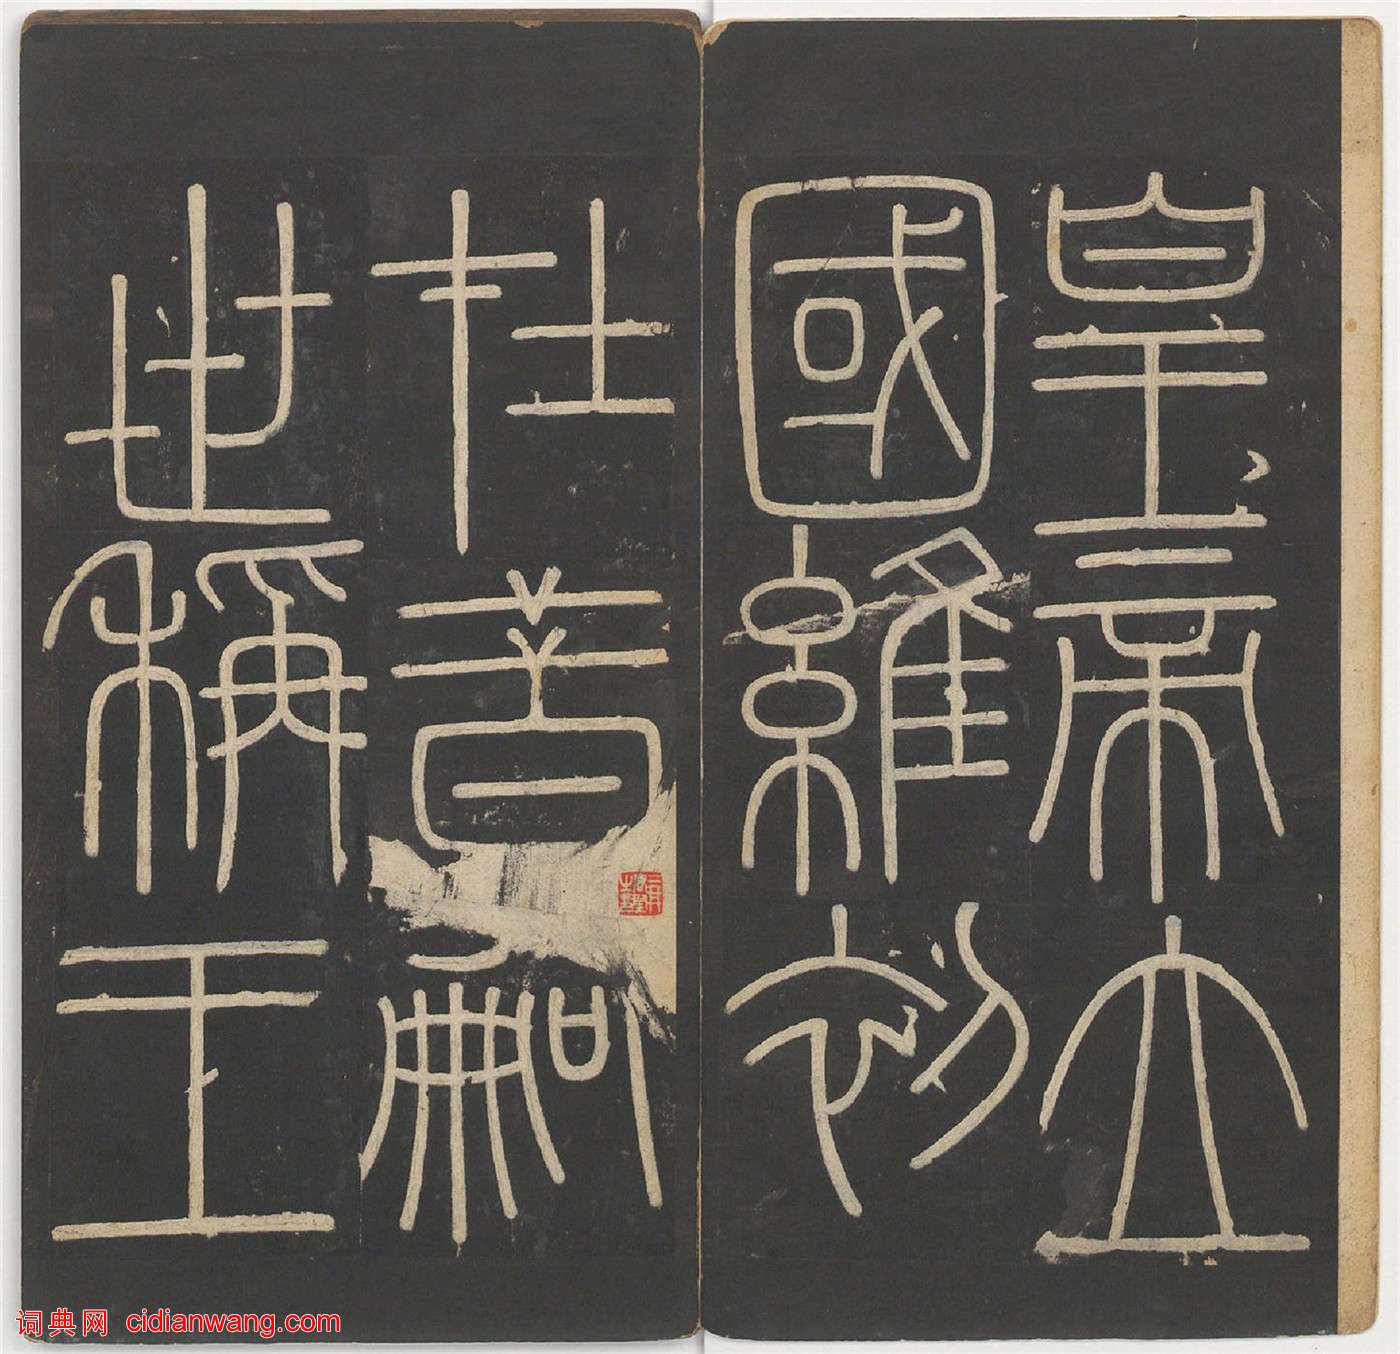 皇帝立
國維初
在昔嗣
世稱王
词典网 cidianwang.com